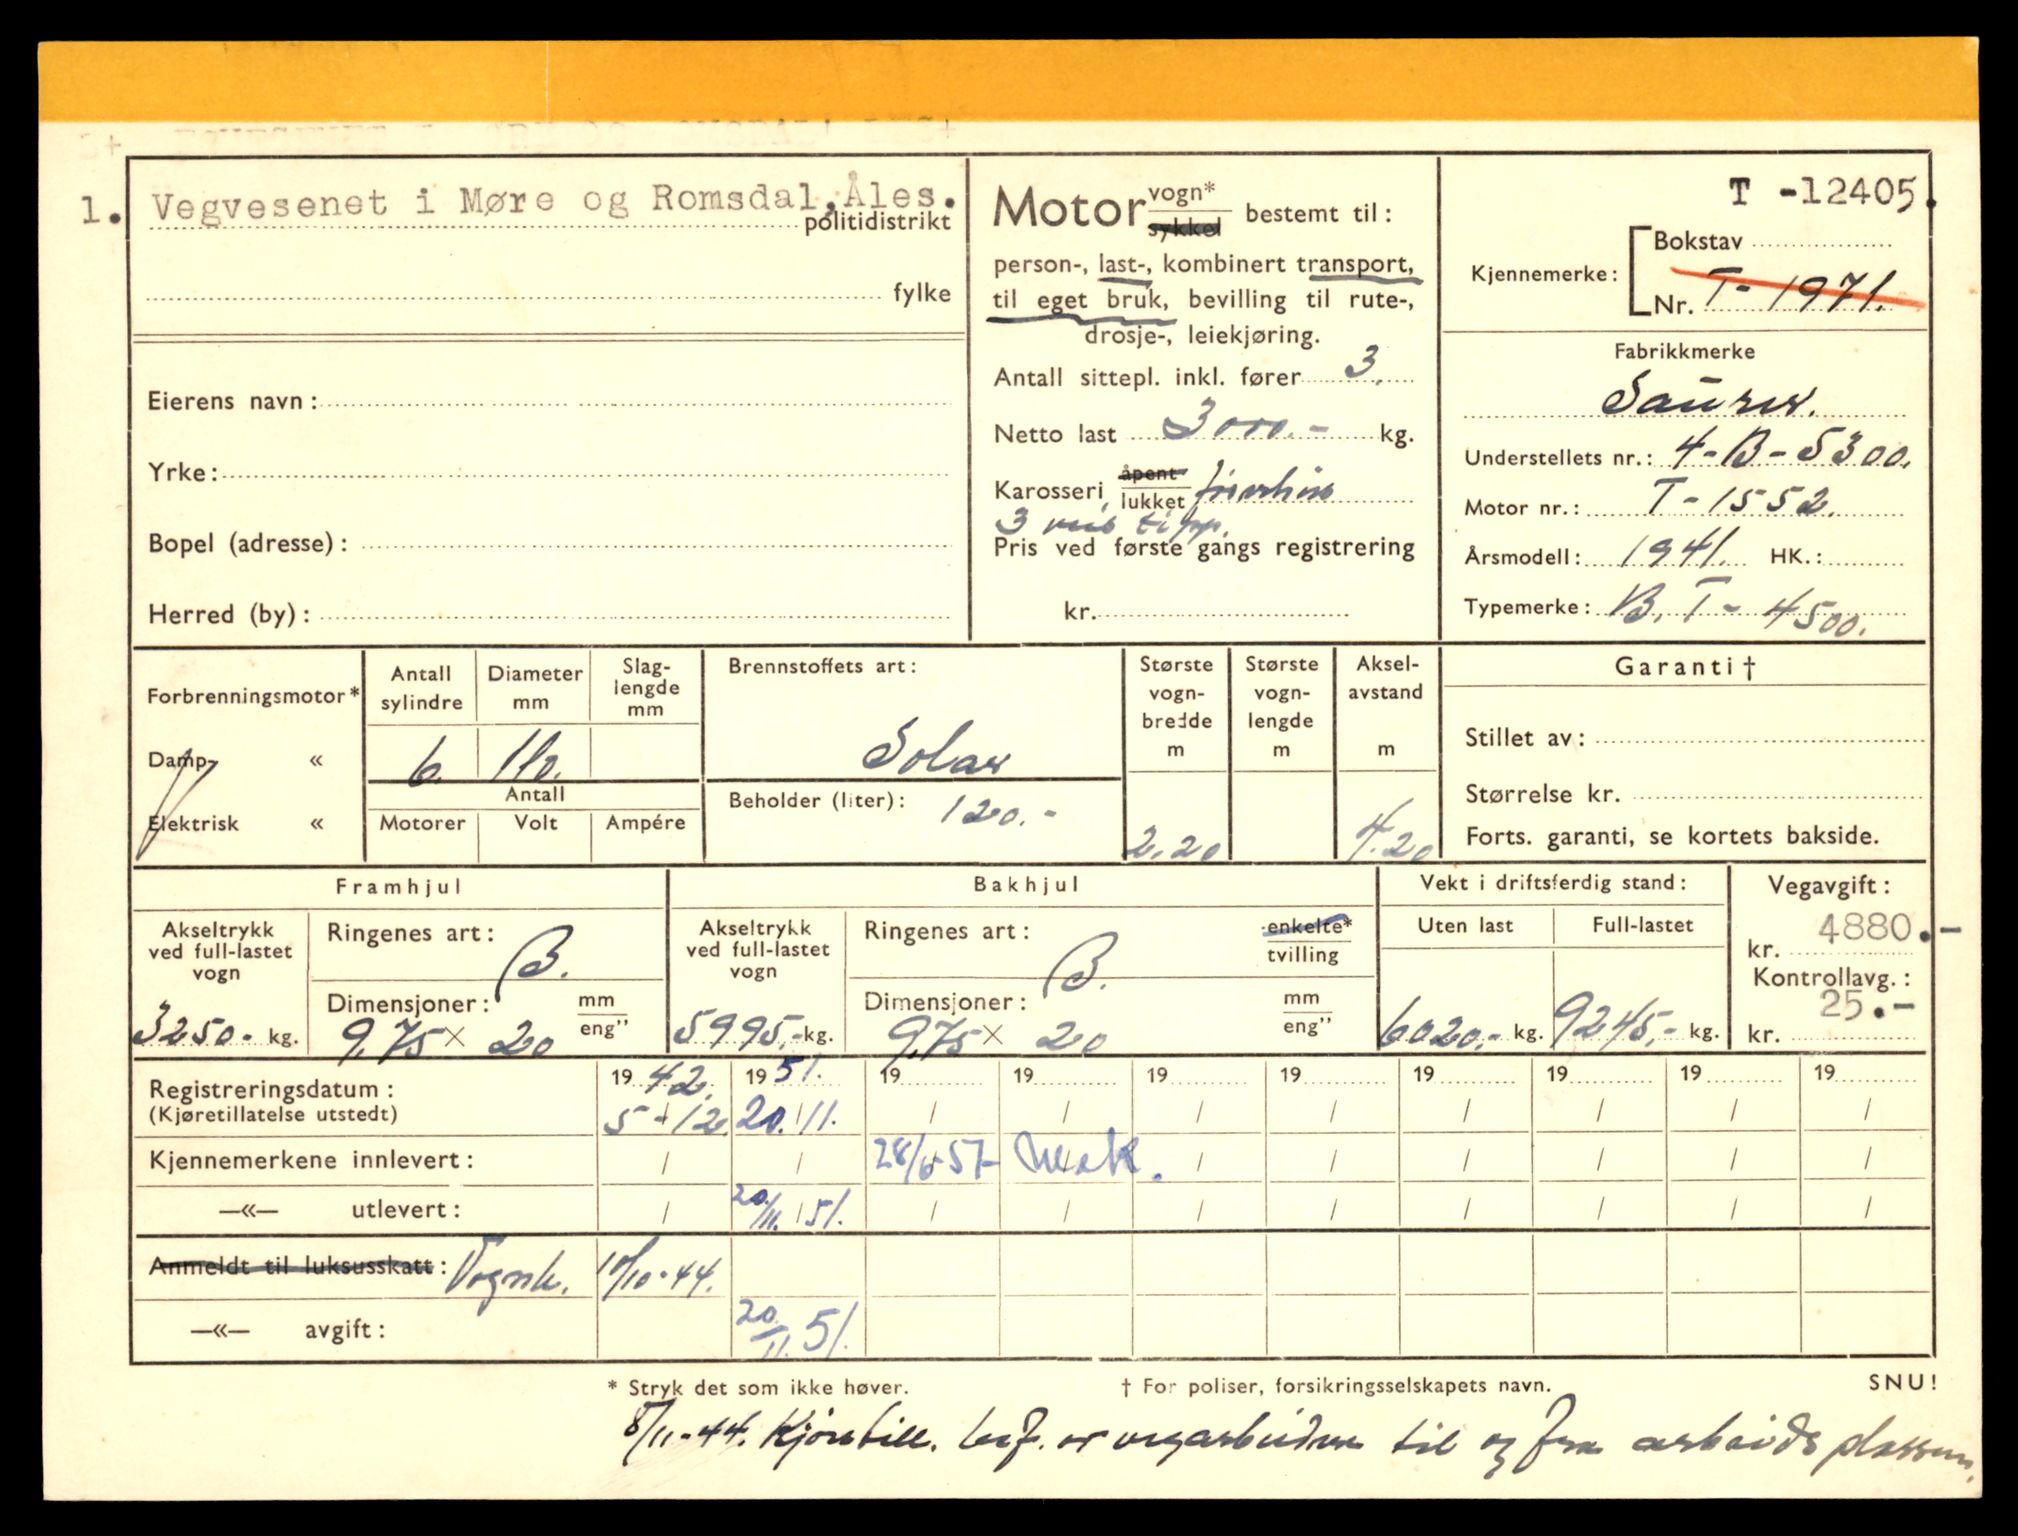 1. Vegvesenet i Møre og Romsdal, Åles.
politidistrikt
fylke
Eierens navn:
Yrke:
Bopel (adresse):
Herred (by):
Motor vogn*
sykkel
bestemt til:
person-, last-, kombinert transport,
til eget bruk, bevilling til rute-,
drosje-, leiekjøring.
Antall sittepl. inkl. fører 3.
Netto last 3000.- kg.
Karosseri åpent
lukket førerhus
3 veis tipp.
Pris ved første gangs registrering
kr.
T -12405.
Kjennemerke:
Bokstav
Nr. T- 1971.
Fabrikkmerke
Saurer.
Understellets nr.: 4-B-5300.
Motor nr.: T-1552.
Årsmodell: 1941. HK.:
Typemerke: B.T- 4500.
Forbrenningsmotor*
Damp- «
Elektrisk «
Antall sylindre
6.
Diameter mm
110.
Slag-
lengde
mm
Antall
Motorer Volt Ampére
Brennstoffets art:
Solar
Beholder (liter): 120.-
Største
vogn-
bredde
m
2.20
Største
vogn-
lengde
m
Aksel-
avstand
m
4.20
Garanti †
Stillet av:
Størrelse kr.
Forts. garanti, se kortets bakside.
Framhjul
Akseltrykk
ved full-lastet
vogn
3250.- kg.
Ringenes art: B.
Dimensjoner: mm
eng”
9.75 × 20
Bakhjul
Akseltrykk
ved full-lastet
vogn
5995.- kg.
Ringenes art: B. enkelte*
tvilling
Dimensjoner: mm
eng”
9.75 × 20
Vekt i driftsferdig stand:
Uten last Full-lastet
6020.- kg. 9245.- kg.
Vegavgift:
kr. 4880.-
Kontrollavg.:
kr. 25.-
Registreringsdatum: 1942. 1951. 19 19 19 19 19 19 19 19
(Kjøretillatelse utstedt) 5-12. 20./11. / / / / / / / /
Kjennemerkene innlevert: / / 28/6-57- Vrak. / / / / / /
—«— utlevert: / 20/11. 51. / / / / / / / /
Anmeldt til luksusskatt: Vognk. 10/10-44.
—«— avgift: 20/11. 51.
* Stryk det som ikke høver.
† For poliser, forsikringsselskapets navn.
SNU!
8/11-44. Kjøretill. bef. av vegarbeidere til og fra arbeidsplassen.